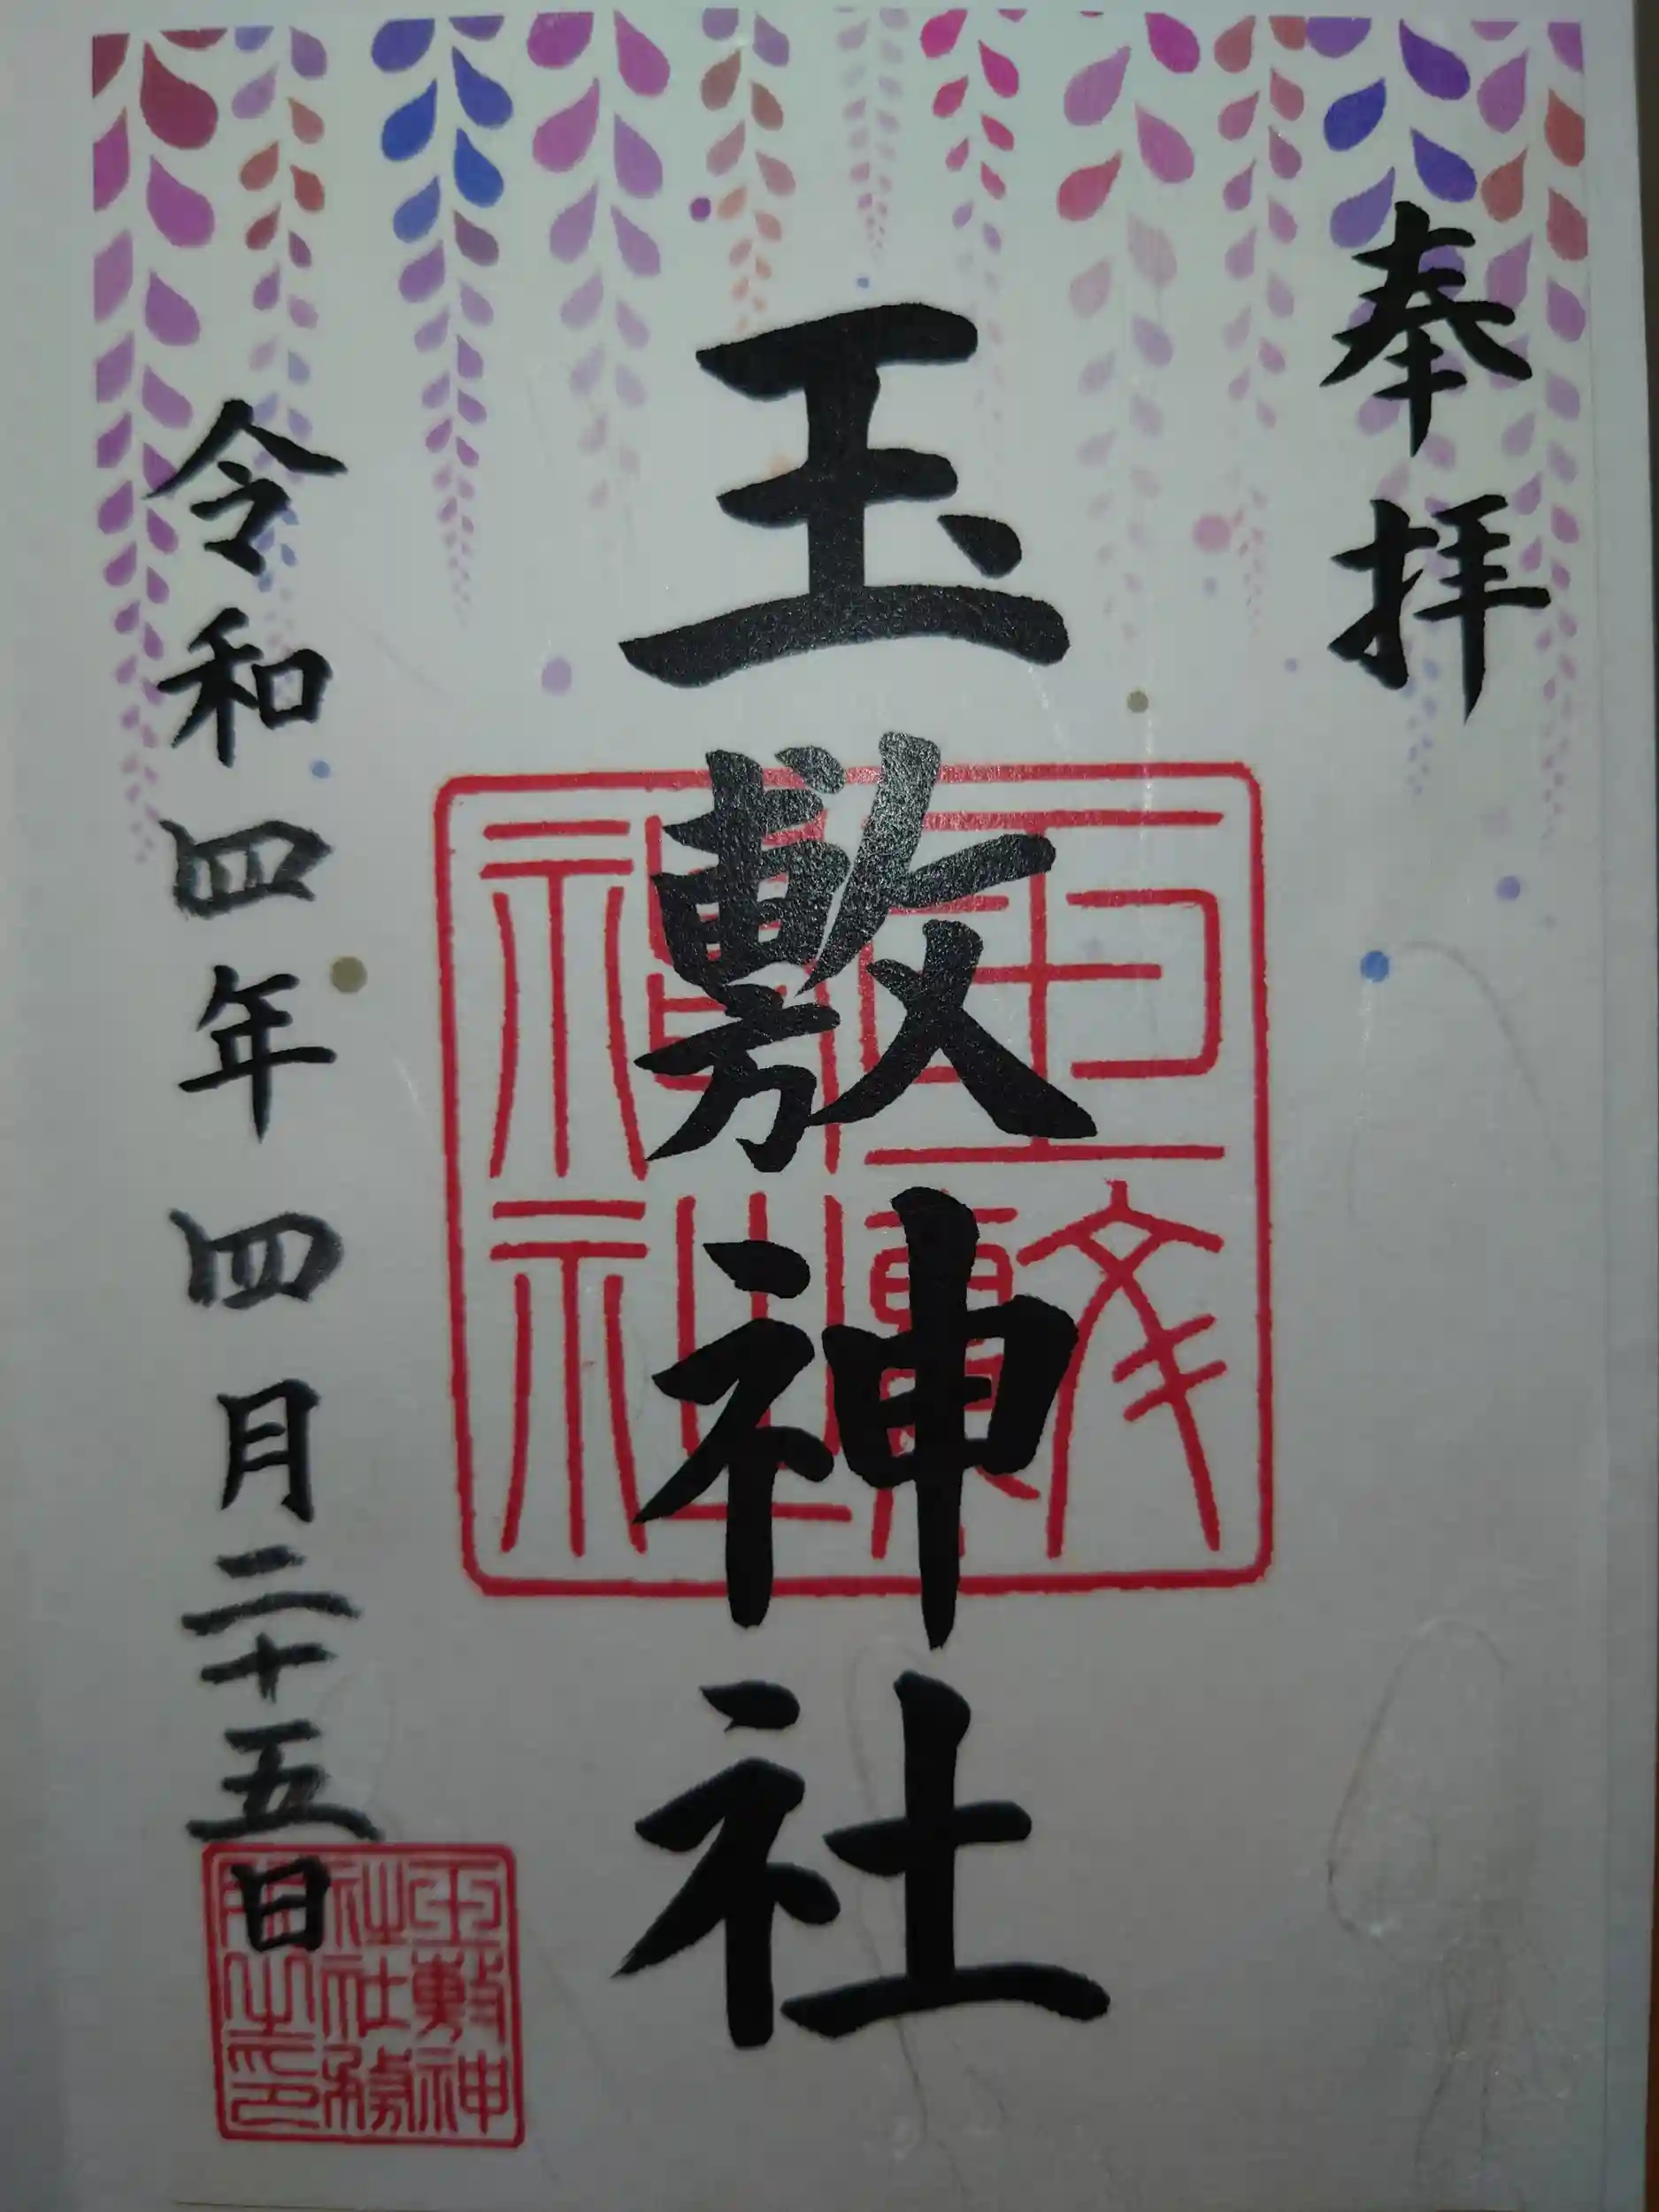 奉拝
玉敷神社
令和四年四月二十五日
玉敷神社
玉敷神
社社務
所之印